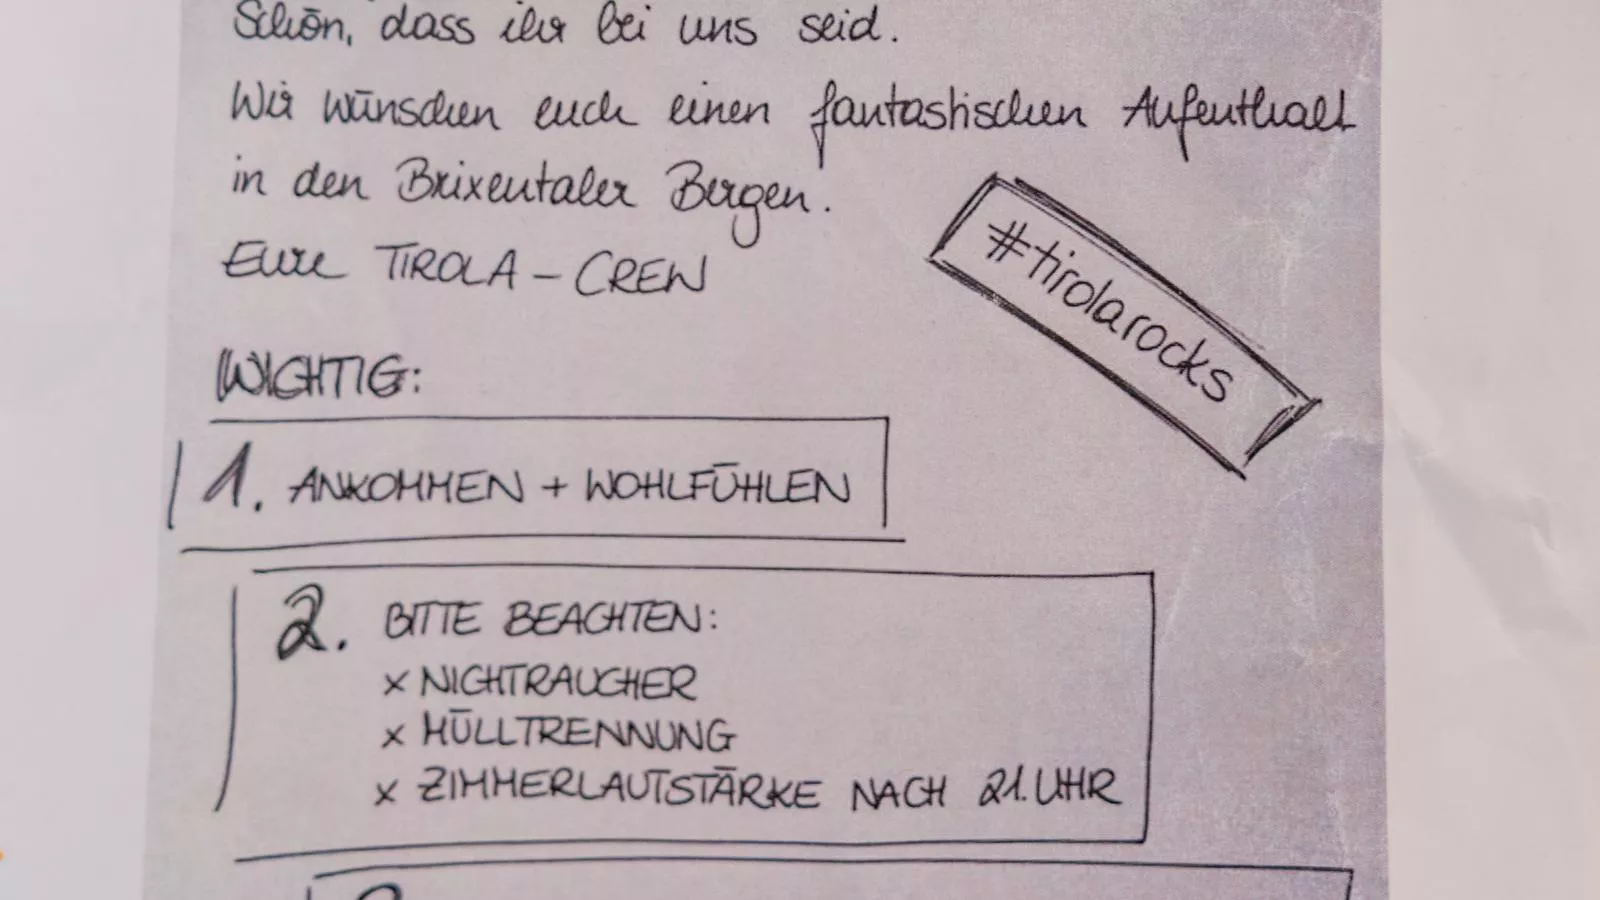 Schön, dass ihr bei uns seid.
Wir wünschen euch einen fantastischen Aufenthalt
in den Brixentaler Bergen.
Eure TIROLA – CREW
#tirolarocks
WICHTIG:
1. ANKOMMEN + WOHLFÜHLEN
2. BITTE BEACHTEN:
x NICHTRAUCHER
x MÜLLTRENNUNG
x ZIMMERLAUTSTÄRKE NACH 21. UHR